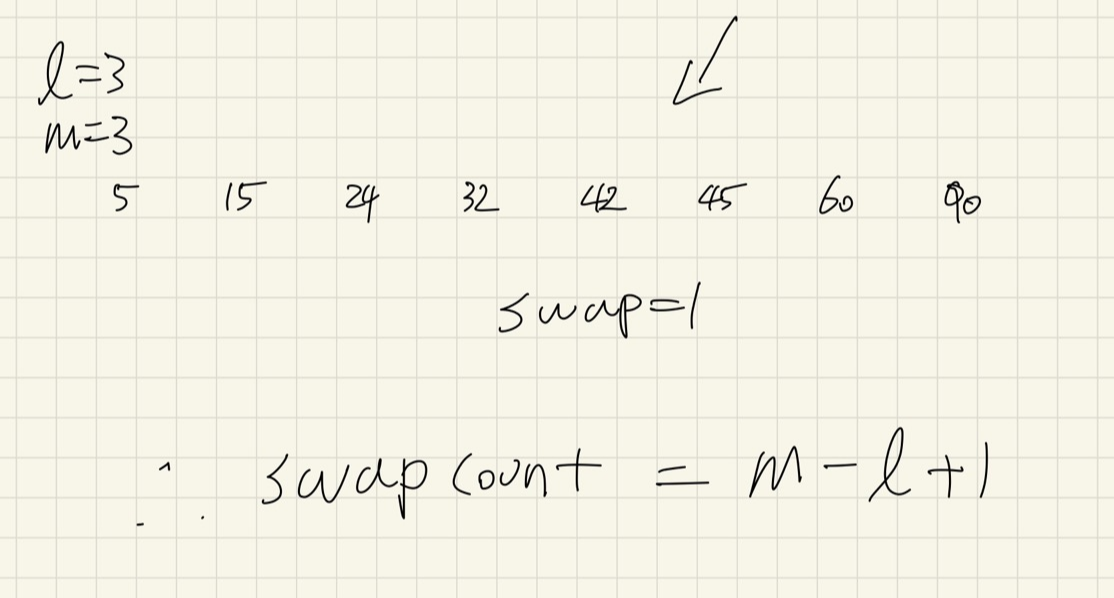 l=3
m=3
5 15 24 32 42 45 60 90
swap=1
∴ swap count = m-l+1